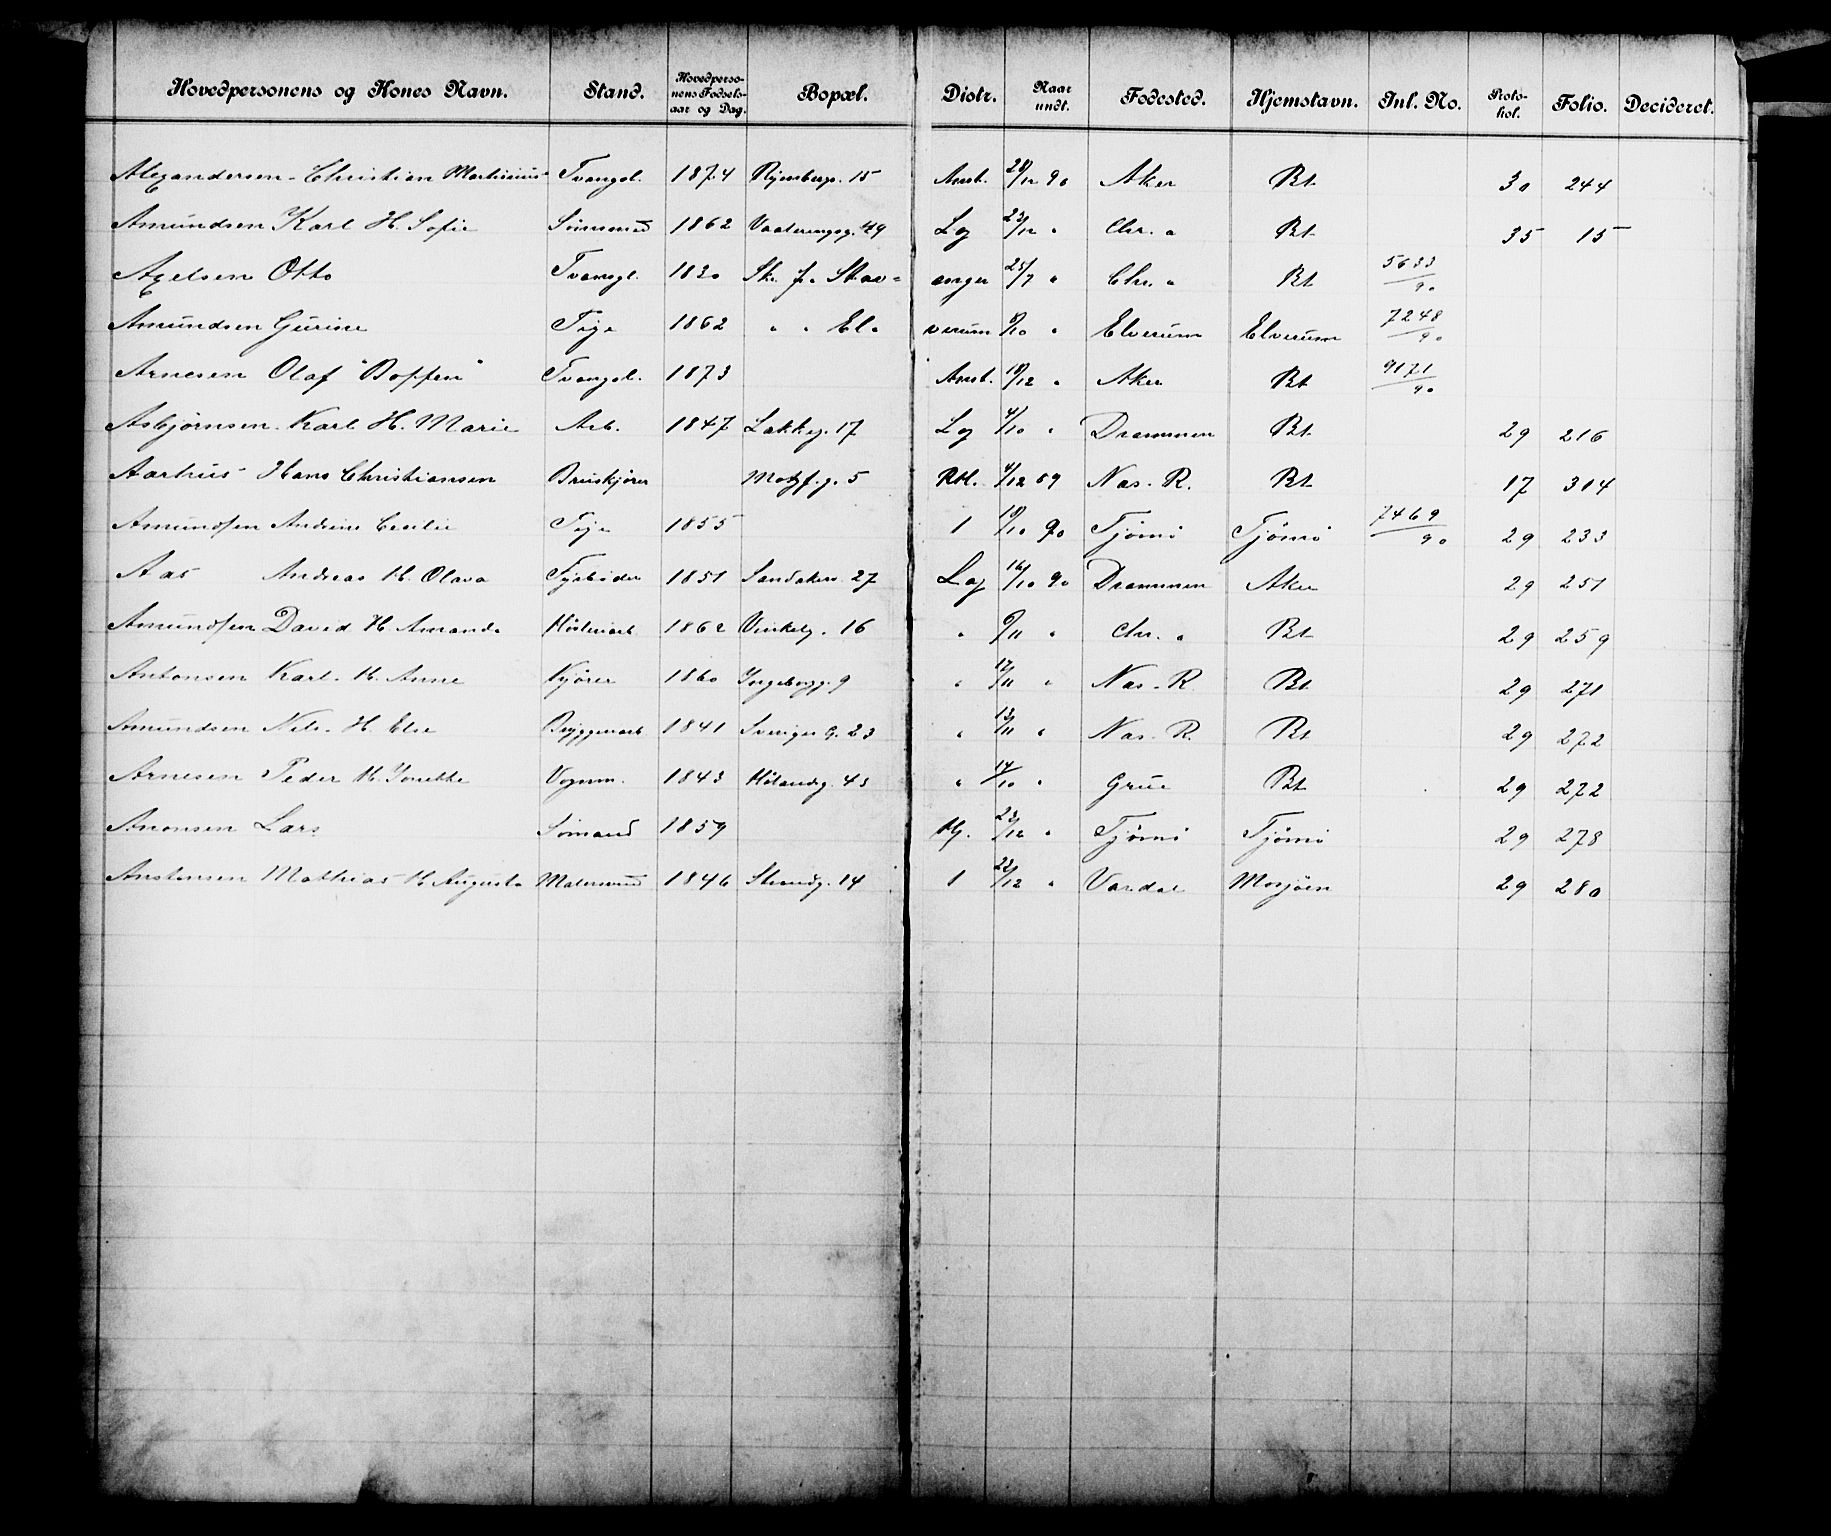 Hovedpersonens og Kones Navn. Stand. Hovedpersonens Fødselsaar og Dag. Bopæl. Distr. Naar undt. Fødested. Hjemstavn. Inl. No. Protokol. Folio. Decideret.
Alexandersen Christian Martinius Tvangsl. 1874 15 Anst. 28/12 90 Aker Bt 30 244
Amundsen Karl H. Sofie 1862 Vaaleringsg. 49 Log 23/12 " Chr. a Bt 35 15
Axelsen Otto Tvangsl. 1830 Sk. f. Stav- anger 25/7 " Chr. a Bt 5633/90
Amundsen Gurine Pige 1862 " " El- verum /10 " Elverum Elverum 7248/90
Arnesen Olaf "Boffen" Tvangsl. 1873 Anst. 18/12 " Aker Bt 9171/90
Asbjørnsen Karl H. Marie Arb. 1847 Lakkeg. 17 Log 4/10 " Drammen Bt 29 216
Aarhus Hans Christiansen Bruskjører Motzf. g. 5 4/12 89 Næs. R. Bt 17 304
Amundsen Andrine Cecilie Pige 1855 1 10/10 90 Tjømø Tjømø 7469/90 29 233
Aas Andreas H. Olava Fyrbøder 1851 Sandakerv. 27 Log 16/10 90 Drammen Aker 29 251
Amundsen David H. Amanda 1862 Vinkelg. 16 " /11 " Chr. a Bt 29 259
Antonsen Karl. H. Anne Kjører 1860 Ingeborgg. 9 " 12/11 " Næs. R. Bt 29 271
Amundsen Nils. H. Else Bryggeriarb 1841 Sveriges g. 23 " 13/11 " Næs. R. Bt 29 272
Arnesen Peder H. Jonette Vognm. 1843 Hølandsg. 43 " 14/10 " Grue Bt 29 272
Anonsen Lars Sømand 1859 23/12 " Tjømø Tjømø 29 278
Anstensen Mathias H. Augusta Malersvend 1846 Strandg. 14 1 22/12 " Vardal Mosjøen 29 280